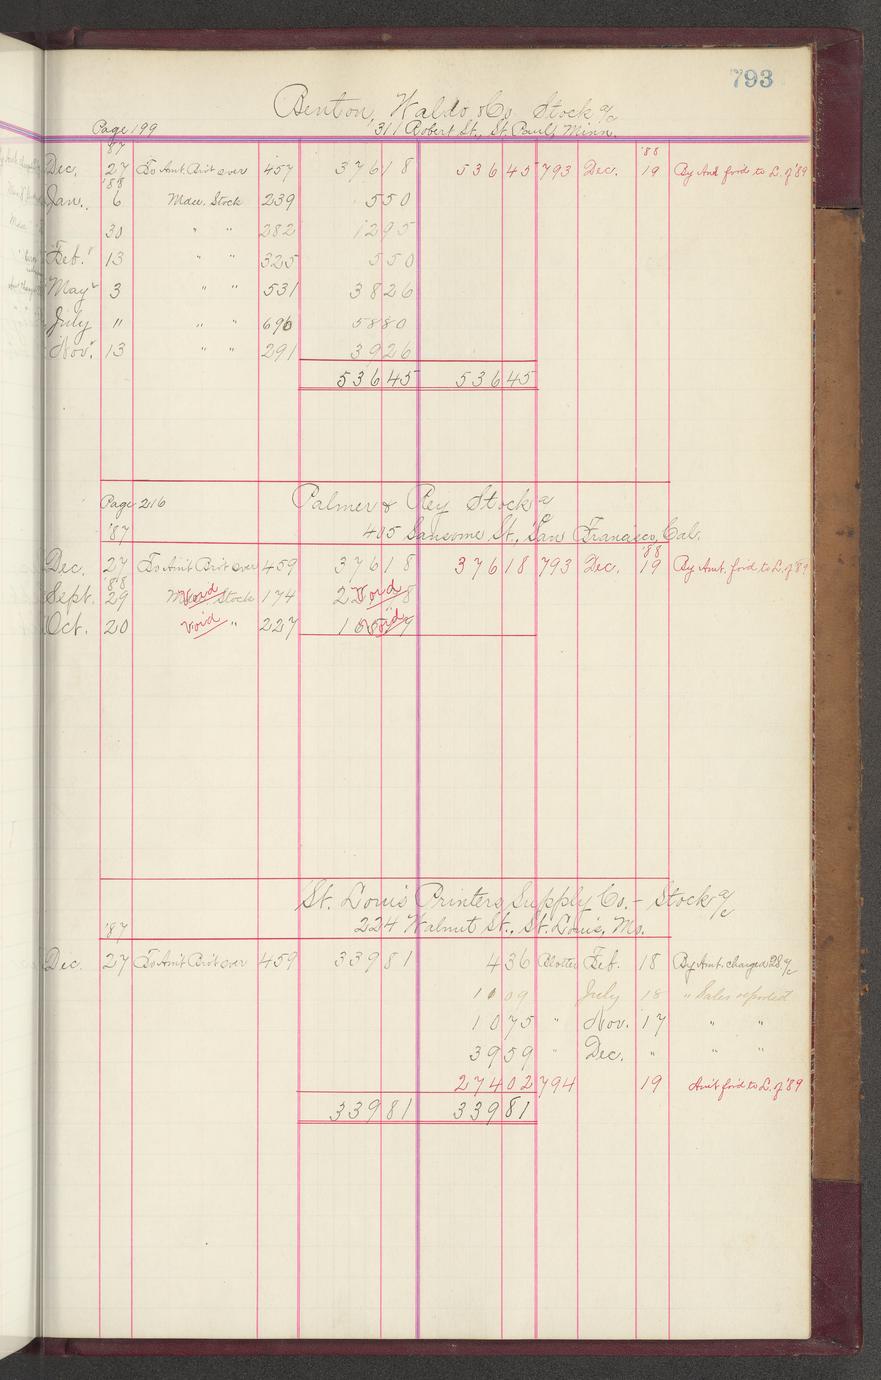 793
Benton, Waldo & Co. Stock a/c
Page 199 311 Robert St., St. Paul, Minn.
'87 '88
Dec. 27 To Amt. Bro't over 457 376 18 536 45 793 Dec. 19 By Amt. forw'd to L. of '89
'88
Jan. 6 Mdse. Stock 239 5 50
30 " " 282 12 95
Feb. 13 " " 325 5 50
May 3 " " 531 38 26
July " " " 696 58 80
Nov. 13 " " 291 39 26
536 45 536 45
Page 216 Palmer & Rey Stock a/c
'87 405 Sansome St., San Francisco, Cal.
'88
Dec. 27 To Am't Bro't over 459 376 18 376 18 793 Dec. 19 By Amt. forw'd to L. of '89
'88
Sept. 29 Mdse. Stock Void 174 Void
Oct. 20 Void " 227 Void
St. Louis Printers Supply Co. - Stock a/c
'87 224 Walnut St., St. Louis, Mo.
Dec. 27 To Am't Bro't over 459 339 81 4 36 Blotter Feb. 18 By Amt. charged 28 a/c
10 09 July 18 " Sales reported
10 75 " Nov. 17 " "
39 59 " Dec. " " "
274 02 794 19 Am't forw'd to L. of '89
339 81 339 81